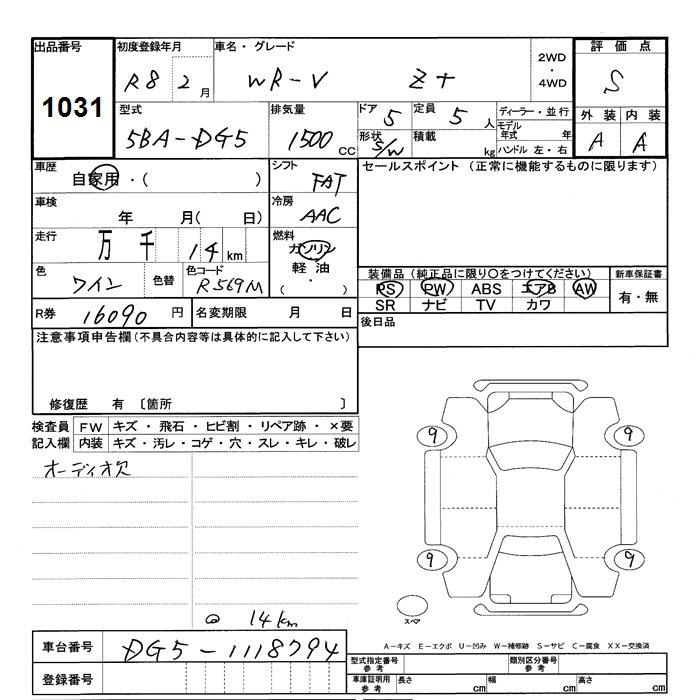 出品番号 初度登録年月 車名・グレード 2WD・4WD 評価点
1031 R8 2月 WR-V Z+ S
型式 排気量 ドア 5 定員 5人 ディーラー・並行 外装 内装
5BA-DG5 1500cc 形状 S/W 積載 kg モデル年式 年 A A
ハンドル 左・右
車歴 シフト セールスポイント (正常に機能するものに限ります)
自家用・( ) FAT
車検 冷房
年 月( 日) AAC
走行 燃料
万 千 14km ガソリン
軽油
( ・ )
色 色替 色コード 装備品 (純正品に限り○をつけてください) 新車保証書
ワイン R569M PS PW ABS エアB AW 有・無
SR ナビ TV カワ
R券 16090円 名変期限 月 日 後日品
注意事項申告欄(不具合内容等は具体的に記入して下さい)
修復歴 有 〔箇所 〕
検査員 FW キズ・飛石・ヒビ割・リペア跡・×要
記入欄 内装 キズ・汚レ・コゲ・穴・スレ・キレ・破レ
オーディオ欠
9 9
9 9
スペア
@ 14km
A-キズ E-エクボ U-凹み W-補修跡 S-サビ C-腐食 XX-交換済
車台番号 DG5-1118794
型式指定番号 参考 類別区分番号 参考
登録番号 車庫証明用 参考 長さ cm 幅 cm 高さ cm